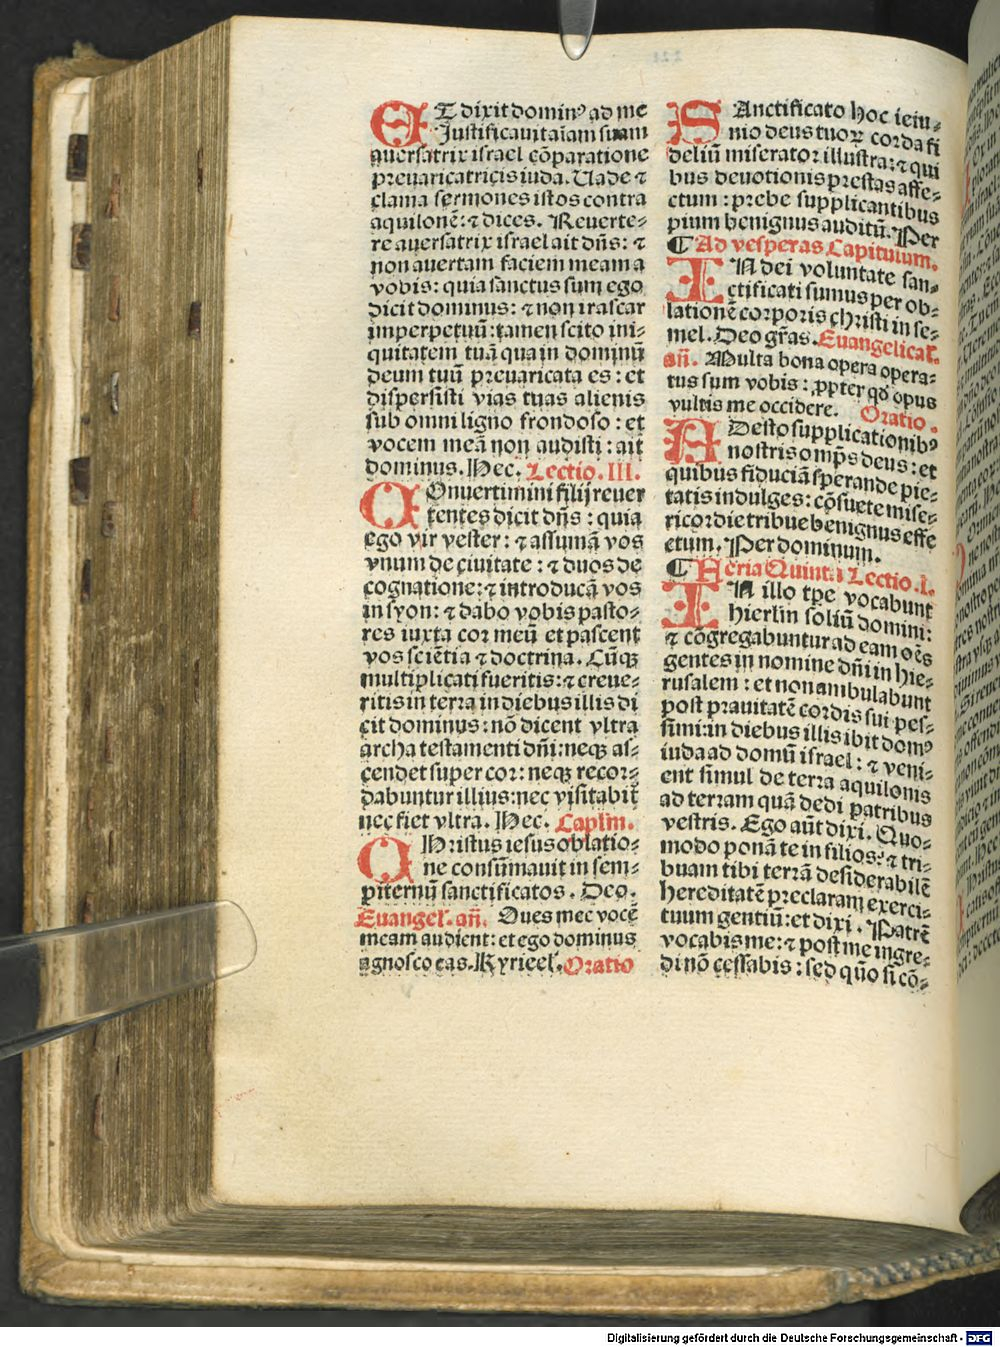 ET dixit dominꝰ ad me
Justificauit aīam suam
auersatrix israel cōparatione
preuaricatricis iuda. Uade ⁊
clama sermones istos contra
aquilonē: ⁊ dices. Reuerte-
re auersatrix israel ait dn̄s: ⁊
non auertam faciem meam a
vobis: quia sanctus sum ego
dicit dominus: ⁊ non irascar
imperpetuū: tamen scito ini-
quitatem tuā qua in dominū
deum tuū preuaricata es: et
dispersisti vias tuas alienis
sub omni ligno frondoso: et
vocem meā non audisti: ait
dominus. Hec. Lectio. III.
COnuertimini filij reuer
tentes dicit dn̄s: quia
ego vir vester: ⁊ assumā vos
vnum de ciuitate: ⁊ duos de
cognatione: ⁊ introducā vos
in syon: ⁊ dabo vobis pasto-
res iuxta cor meū et pascent
vos sciētia ⁊ doctrina. Cūqꝫ
multiplicati fueritis: ⁊ creue-
ritis in terra in diebus illis di
cit dominus: nō dicent vltra
archa testamenti dn̄i: neqꝫ as-
cendet super cor: neqꝫ recor-
dabuntur illius: nec visitabit̄
nec fiet vltra. Hec. Caplm̄.
CHristus iesus oblatio-
ne consūmauit in sem-
piternū sanctificatos. Deo.
Euangel̄. an̄. Oues mee vocē
meam audient: et ego dominus
agnosco eas. Kyrieel̄. Oratio
SAnctificato hoc ieiu-
nio deus tuoꝝ corda fi
deliū miserator illustra: ⁊ qui
bus deuotionis prestas affe-
ctum: prebe supplicantibus
pium benignus auditū. Per
¶ Ad vesperas Capitulum.
IN dei voluntate san-
ctificati sumus per ob-
lationē corporis christi in se-
mel. Deo gr̄as. Euangelical̄.
an̄. Multa bona opera opera-
tus sum vobis: ꝓpter qd̄ opus
vultis me occidere. Oratio.
ADesto supplicationibꝰ
nostris omp̄s deus: et
quibus fiduciā sperande pie-
tatis indulges: cōsuete mise-
ricordie tribue benignus effe
ctum. Per dominum.
¶ Feria Quinta Lectio. I.
IN illo tp̄e vocabunt
hierl̄m soliū domini:
⁊ cōgregabuntur ad eam oēs
gentes in nomine dn̄i in hie-
rusalem: et non ambulabunt
post prauitatē cordis sui pes-
simi: in diebus illis ibit domꝰ
iuda ad domū israel: ⁊ veni-
ent simul de terra aquilonis
ad terram quā dedi patribus
vestris. Ego aūt dixi. Quo-
modo ponā te in filios: ⁊ tri-
buam tibi terrā desiderabilē
hereditatē preclaram exerci-
tuum gentiū: et dixi. Patrē
vocabis me: ⁊ post me ingre-
di nō cessabis: sed quō si cō-
Digitalisierung gefördert durch die Deutsche Forschungsgemeinschaft - DFG